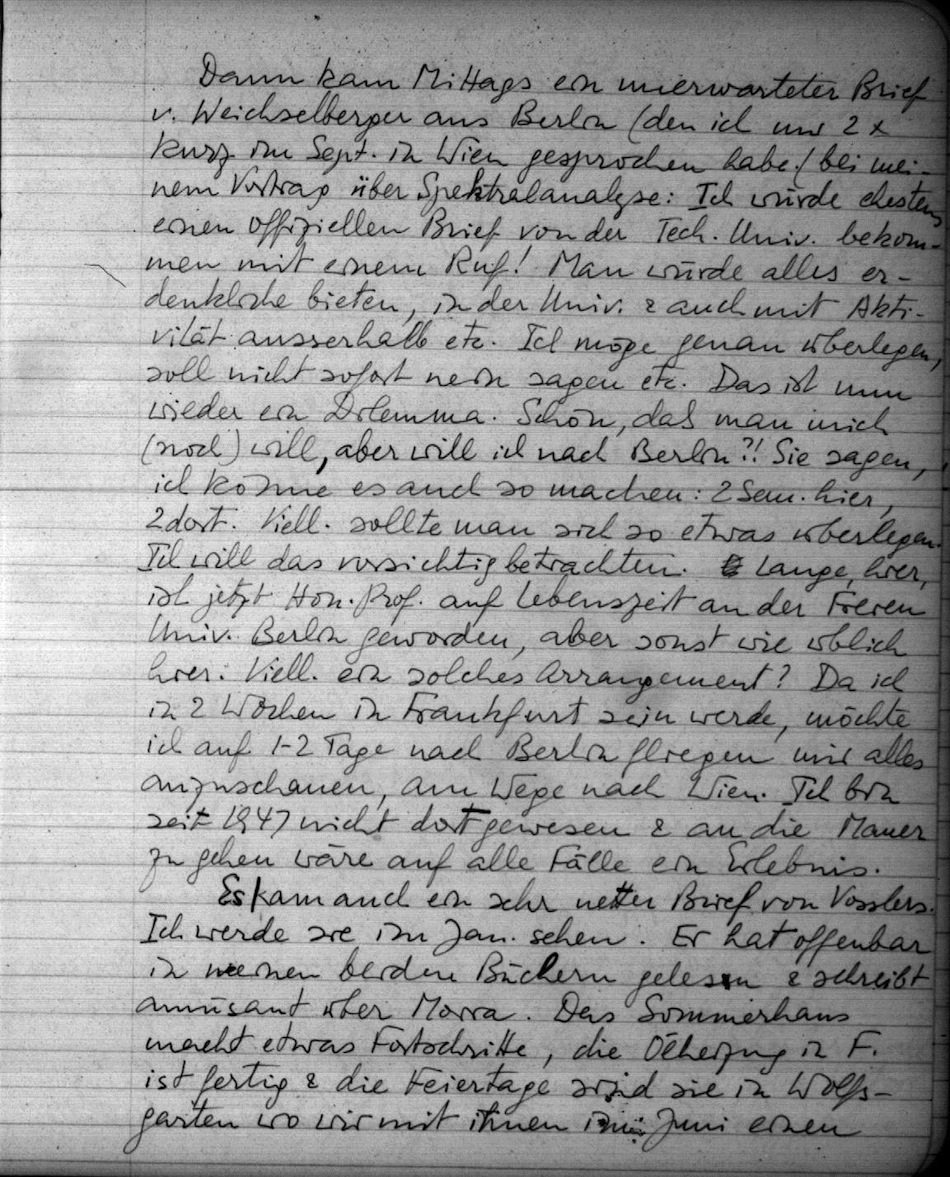 Dann kam Mittags ein unerwarteter Brief
v. Weichselberger aus Berlin (den ich nur 2 x
kurz im Sept. in Wien gesprochen habe / bei mei-
nem Vortrag über Spektralanalyse: Ich würde ehestens
einen offiziellen Brief von der Tech. Univ. bekom-
men mit einem Ruf! Man würde alles er-
denkliche bieten, in der Univ. & auch mit Akti-
vität ausserhalb etc. Ich möge genau überlegen,
soll nicht sofort nein sagen etc. Das ist nun
wieder ein Dilemma. Schön, daß man mich
(noch) will, aber will ich nach Berlin?! Sie sagen,
ich könne es auch so machen: 2 Sem. hier,
2 dort. Viell. sollte man sich so etwas überlegen.
Ich will das vorsichtig betrachten. Lange, hier,
ist jetzt Hon. Prof. auf Lebenszeit an der Freien
Univ. Berlin geworden, aber sonst wie üblich
hier. Viell. ein solches Arrangement? Da ich
in 2 Wochen in Frankfurt sein werde, möchte
ich auf 1-2 Tage nach Berlin fliegen mir alles
anzuschauen, am Wege nach Wien. Ich bin
seit 1947 nicht dort gewesen & an die Mauer
zu gehen wäre auf alle Fälle ein Erlebnis.
Es kam auch ein sehr netter Brief von Vosslers.
Ich werde sie im Jan. sehen. Er hat offenbar
in meinen beiden Büchern gelesen & schreibt
amüsant über Morra. Das Sommerhaus
macht etwas Fortschritte, die Ölheizung in F.
ist fertig & die Feiertage sind sie in Wolfs-
garten wo wir mit ihnen im Juni einen